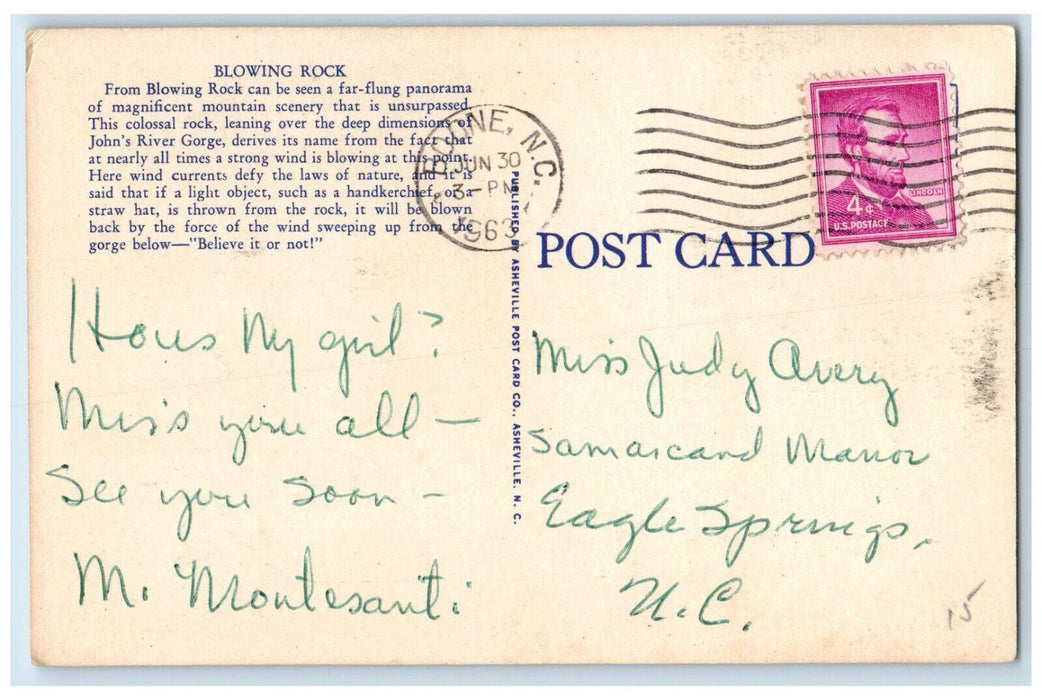 BLOWING ROCK
From Blowing Rock can be seen a far-flung panorama
of magnificent mountain scenery that is unsurpassed.
This colossal rock, leaning over the deep dimensions of
John's River Gorge, derives its name from the fact that
at nearly all times a strong wind is blowing at this point.
Here wind currents defy the laws of nature, and it is
said that if a light object, such as a handkerchief, or a
straw hat, is thrown from the rock, it will be blown
back by the force of the wind sweeping up from the
gorge below—"Believe it or not!"
BOONE, N.C.
JUN 30
3-PM
1963
LINCOLN
4¢
U.S. POSTAGE
PUBLISHED BY ASHEVILLE POST CARD CO., ASHEVILLE, N. C.
POST CARD
Hows My girl?
Miss you all —
See you soon —
M. Montesanti
Miss Judy Avery
Samarcand Manor
Eagle Springs,
N.C.
15